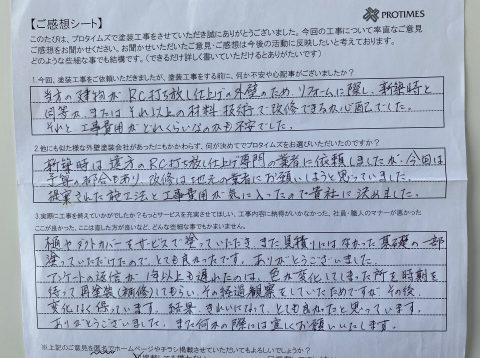 【ご感想シート】
PROTIMES
このたびは、プロタイムズで塗装工事をさせていただき誠にありがとうございました。今回の工事について率直なご意見
ご感想をお聞かせください。お聞かせいただいたご意見・ご感想は今後の活動に反映したいと考えております。
どのような些細な事でも結構です。(できるだけ詳しく書いていただけるとありがたいです)
1.今回、塗装工事をご依頼いただきましたが、塗装工事をする前に、何か不安や心配事がございましたか?
当方の建物が、RC打ち放し仕上げの外壁のため、リフォームに際し、新築時と
同等か、またはそれ以上の材料、技術で改修できるか心配でした。
それと工事費用がどれくらいなのかも不安でした。
2.他にも似た様な外壁塗装会社があったにもかかわらず、何が決めてでプロタイムズをお選びいただいたのですか?
新築時は遠方のRC打ち放し仕上げ専門の業者に依頼しましたが、今回は
予算の都合もあり、改修は地元の業者にお願いしようと思っていました。
提案された施工法と工事費用が気に入ったので貴社に決めました。
3.実際に工事を終えていかがでしたか?もっとサービスを充実させてほしい、工事内容に納得がいかなかった、社員・職人のマナーが悪かった
ここが良かった、ここは直した方が良いなど、どんな些細な事でもかまいません。
樋やダクトカバーをサービスで塗っていただき、また見積りにはなかった基礎の一部
塗っていただけたので、とても良かったです。ありがとうございました。
アンケートの返信が1年以上も遅れたのは、色が変化してしまった所を時期を
待って再塗装(補修)してもらい、その経過観察をしていたためですが、その後、
変化なく保っています。結果、きれいになって、とても良かったと思っています。
ありがとうございました。また何かの際には宜しくお願いいたします。
※上記のご意見を匿名でホームページやチラシ掲載させていただいてもよろしいでしょうか?